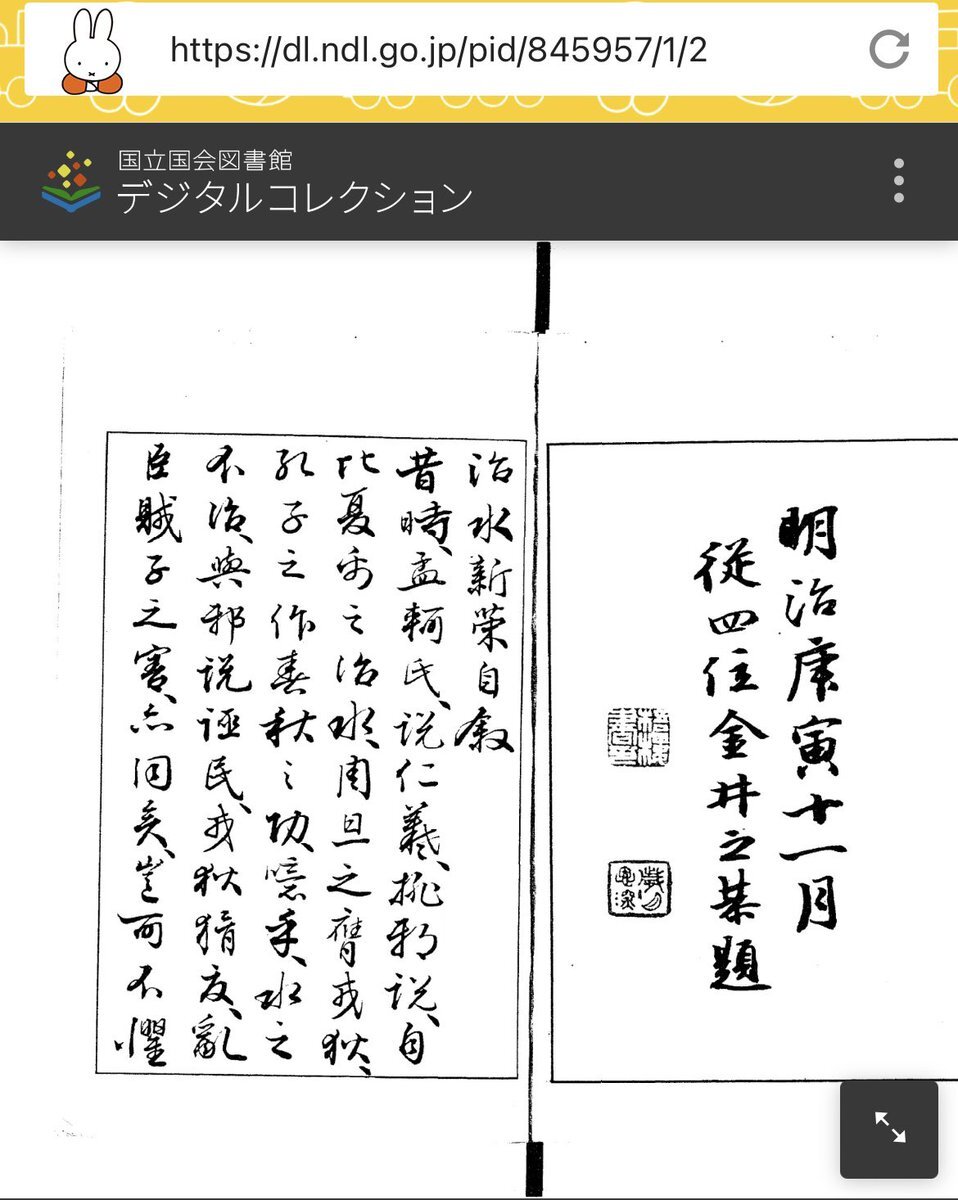 https://dl.ndl.go.jp/pid/845957/1/2
国立国会図書館
デジタルコレクション
明治庚寅十一月
從四位金井之恭題
治水新策自叙
昔時、孟軻氏、説仁義、排邪説、自
比夏禹之治水、周旦之膺戎狄、
孔子之作春秋之功、噫乎、水之
不治、與邪説誣民、戎狄猾夏、亂
臣賊子之害、亦同矣、豈可不懼